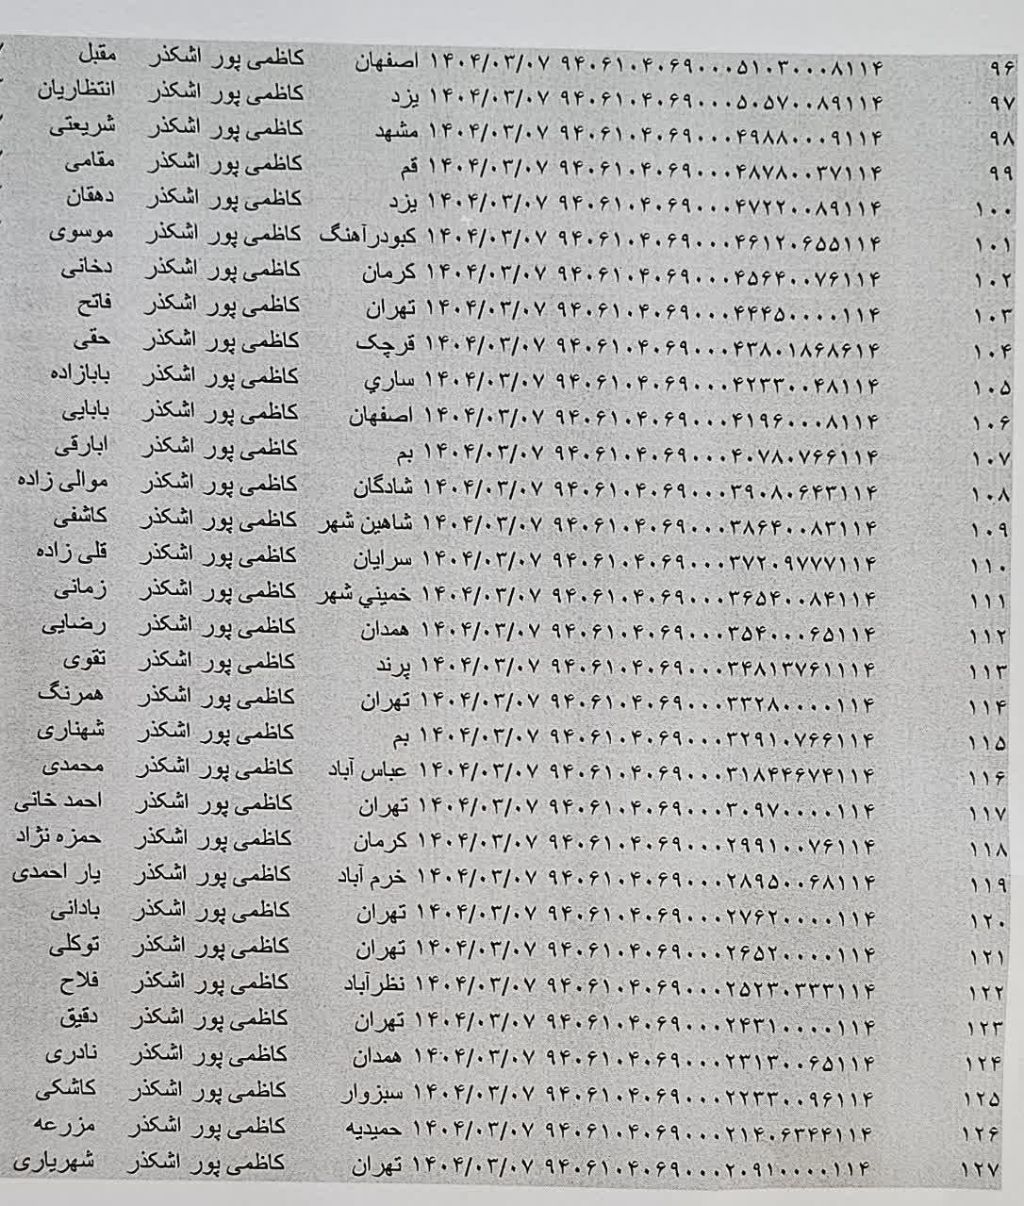 ۹۶ ۹۴۰۶۱۰۴۰۶۹۰۰۰۵۱۰۳۰۰۰۸۱۱۴ ۱۴۰۴/۰۳/۰۷ اصفهان کاظمی پور اشکذر مقبل
۹۷ ۹۴۰۶۱۰۴۰۶۹۰۰۰۵۰۵۷۰۰۸۹۱۱۴ ۱۴۰۴/۰۳/۰۷ یزد کاظمی پور اشکذر انتظاریان
۹۸ ۹۴۰۶۱۰۴۰۶۹۰۰۰۴۹۸۸۰۰۰۹۱۱۴ ۱۴۰۴/۰۳/۰۷ مشهد کاظمی پور اشکذر شریعتی
۹۹ ۹۴۰۶۱۰۴۰۶۹۰۰۰۴۸۷۸۰۰۳۷۱۱۴ ۱۴۰۴/۰۳/۰۷ قم کاظمی پور اشکذر مقامی
۱۰۰ ۹۴۰۶۱۰۴۰۶۹۰۰۰۴۷۲۲۰۰۸۹۱۱۴ ۱۴۰۴/۰۳/۰۷ یزد کاظمی پور اشکذر دهقان
۱۰۱ ۹۴۰۶۱۰۴۰۶۹۰۰۰۴۶۱۲۰۶۵۵۱۱۴ ۱۴۰۴/۰۳/۰۷ کبودرآهنگ کاظمی پور اشکذر موسوی
۱۰۲ ۹۴۰۶۱۰۴۰۶۹۰۰۰۴۵۶۴۰۰۷۶۱۱۴ ۱۴۰۴/۰۳/۰۷ کرمان کاظمی پور اشکذر دخانی
۱۰۳ ۹۴۰۶۱۰۴۰۶۹۰۰۰۴۴۴۵۰۰۰۰۱۱۴ ۱۴۰۴/۰۳/۰۷ تهران کاظمی پور اشکذر فاتح
۱۰۴ ۹۴۰۶۱۰۴۰۶۹۰۰۰۴۳۸۰۱۸۶۸۶۱۴ ۱۴۰۴/۰۳/۰۷ قرچک کاظمی پور اشکذر حقی
۱۰۵ ۹۴۰۶۱۰۴۰۶۹۰۰۰۴۲۳۳۰۰۴۸۱۱۴ ۱۴۰۴/۰۳/۰۷ ساري کاظمی پور اشکذر بابازاده
۱۰۶ ۹۴۰۶۱۰۴۰۶۹۰۰۰۴۱۹۶۰۰۰۸۱۱۴ ۱۴۰۴/۰۳/۰۷ اصفهان کاظمی پور اشکذر بابایی
۱۰۷ ۹۴۰۶۱۰۴۰۶۹۰۰۰۴۰۷۸۰۷۶۶۱۱۴ ۱۴۰۴/۰۳/۰۷ بم کاظمی پور اشکذر ابارقی
۱۰۸ ۹۴۰۶۱۰۴۰۶۹۰۰۰۳۹۰۸۰۶۴۳۱۱۴ ۱۴۰۴/۰۳/۰۷ شادگان کاظمی پور اشکذر موالی زاده
۱۰۹ ۹۴۰۶۱۰۴۰۶۹۰۰۰۳۸۶۴۰۰۸۳۱۱۴ ۱۴۰۴/۰۳/۰۷ شاهین شهر کاظمی پور اشکذر کاشفی
۱۱۰ ۹۴۰۶۱۰۴۰۶۹۰۰۰۳۷۲۰۹۷۷۷۱۱۴ ۱۴۰۴/۰۳/۰۷ سرایان کاظمی پور اشکذر قلی زاده
۱۱۱ ۹۴۰۶۱۰۴۰۶۹۰۰۰۳۶۵۴۰۰۸۴۱۱۴ ۱۴۰۴/۰۳/۰۷ خميني شهر کاظمی پور اشکذر زمانی
۱۱۲ ۹۴۰۶۱۰۴۰۶۹۰۰۰۳۵۴۰۰۰۶۵۱۱۴ ۱۴۰۴/۰۳/۰۷ همدان کاظمی پور اشکذر رضایی
۱۱۳ ۹۴۰۶۱۰۴۰۶۹۰۰۰۳۴۸۱۳۷۶۱۱۱۴ ۱۴۰۴/۰۳/۰۷ پرند کاظمی پور اشکذر تقوی
۱۱۴ ۹۴۰۶۱۰۴۰۶۹۰۰۰۳۳۲۸۰۰۰۰۱۱۴ ۱۴۰۴/۰۳/۰۷ تهران کاظمی پور اشکذر همرنگ
۱۱۵ ۹۴۰۶۱۰۴۰۶۹۰۰۰۳۲۹۱۰۷۶۶۱۱۴ ۱۴۰۴/۰۳/۰۷ بم کاظمی پور اشکذر شهناری
۱۱۶ ۹۴۰۶۱۰۴۰۶۹۰۰۰۳۱۸۴۴۶۷۴۱۱۴ ۱۴۰۴/۰۳/۰۷ عباس آباد کاظمی پور اشکذر محمدی
۱۱۷ ۹۴۰۶۱۰۴۰۶۹۰۰۰۳۰۹۷۰۰۰۰۱۱۴ ۱۴۰۴/۰۳/۰۷ تهران کاظمی پور اشکذر احمد خانی
۱۱۸ ۹۴۰۶۱۰۴۰۶۹۰۰۰۲۹۹۱۰۰۷۶۱۱۴ ۱۴۰۴/۰۳/۰۷ کرمان کاظمی پور اشکذر حمزه نژاد
۱۱۹ ۹۴۰۶۱۰۴۰۶۹۰۰۰۲۸۹۵۰۰۶۸۱۱۴ ۱۴۰۴/۰۳/۰۷ خرم آباد کاظمی پور اشکذر یار احمدی
۱۲۰ ۹۴۰۶۱۰۴۰۶۹۰۰۰۲۷۶۲۰۰۰۰۱۱۴ ۱۴۰۴/۰۳/۰۷ تهران کاظمی پور اشکذر بادانی
۱۲۱ ۹۴۰۶۱۰۴۰۶۹۰۰۰۲۶۵۲۰۰۰۰۱۱۴ ۱۴۰۴/۰۳/۰۷ تهران کاظمی پور اشکذر توکلی
۱۲۲ ۹۴۰۶۱۰۴۰۶۹۰۰۰۲۵۲۳۰۳۳۳۱۱۴ ۱۴۰۴/۰۳/۰۷ نظرآباد کاظمی پور اشکذر فلاح
۱۲۳ ۹۴۰۶۱۰۴۰۶۹۰۰۰۲۴۳۱۰۰۰۰۱۱۴ ۱۴۰۴/۰۳/۰۷ تهران کاظمی پور اشکذر دقیق
۱۲۴ ۹۴۰۶۱۰۴۰۶۹۰۰۰۲۳۱۳۰۰۶۵۱۱۴ ۱۴۰۴/۰۳/۰۷ همدان کاظمی پور اشکذر نادری
۱۲۵ ۹۴۰۶۱۰۴۰۶۹۰۰۰۲۲۳۳۰۰۹۶۱۱۴ ۱۴۰۴/۰۳/۰۷ سبزوار کاظمی پور اشکذر کاشکی
۱۲۶ ۹۴۰۶۱۰۴۰۶۹۰۰۰۲۱۴۰۶۳۴۴۱۱۴ ۱۴۰۴/۰۳/۰۷ حمیدیه کاظمی پور اشکذر مزرعه
۱۲۷ ۹۴۰۶۱۰۴۰۶۹۰۰۰۲۰۹۱۰۰۰۰۱۱۴ ۱۴۰۴/۰۳/۰۷ تهران کاظمی پور اشکذر شهریاری